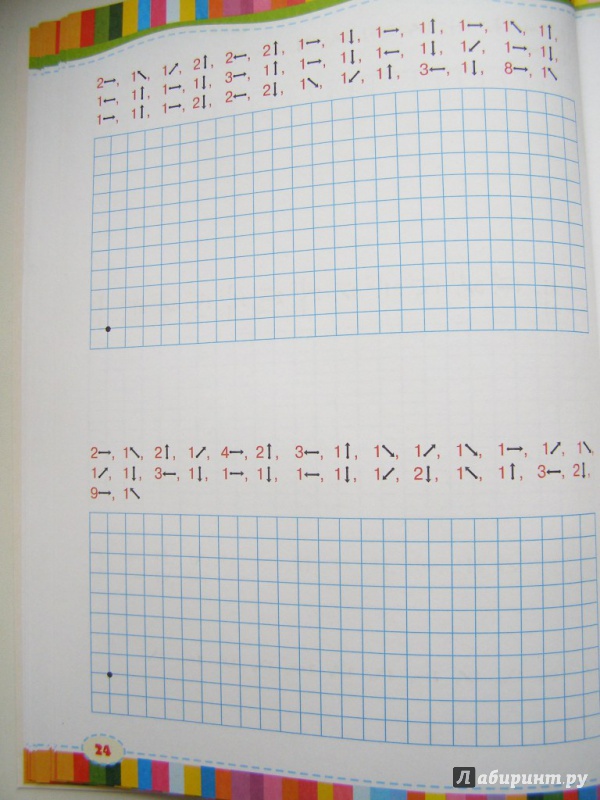 2, 1, 1, 2, 2, 2, 1, 1, 1, 1, 1, 1, 1,
1, 1, 1, 1, 3, 1, 1, 1, 1, 1, 1, 1, 1,
1, 1, 1, 2, 2, 2, 1, 1, 1, 3, 1, 8, 1
2, 1, 2, 1, 4, 2, 3, 1, 1, 1, 1, 1, 1, 1,
1, 1, 3, 1, 1, 1, 1, 1, 1, 2, 1, 1, 3, 2,
9, 1
24
Лабиринт.ру